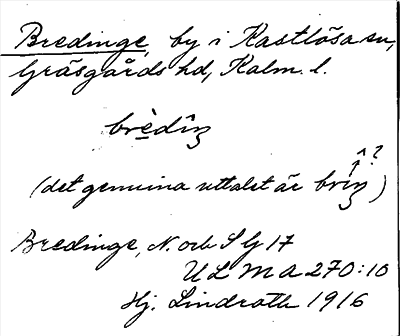 Bredinge, by i Kastlösa sn,
Gräsgårds hd, Kalm. l.
brèdîŋ
^ ?
(det genuina uttalet är bríŋ)
Bredinge, N. och S G 17
ULMA 270:10
Hj. Lindroth 1916